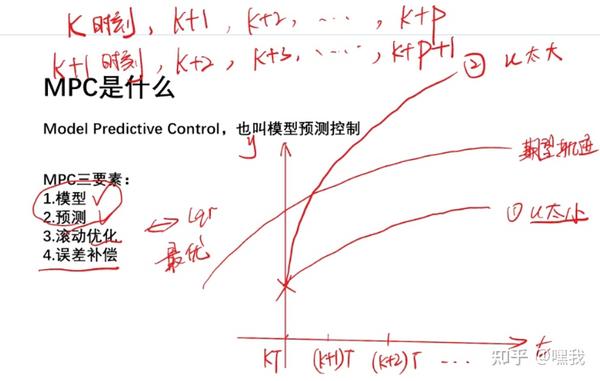 K时刻，K+1，K+2，……，K+P
K+1时刻，K+2，K+3，……，K+P+1
MPC是什么
② u太大
Model Predictive Control，也叫模型预测控制
y
期望轨迹
MPC三要素：
1.模型
2.预测
3.滚动优化
4.误差补偿
lqr
最优
① u太小
KT (K+1)T (K+2)T … t
知乎 @嘿我